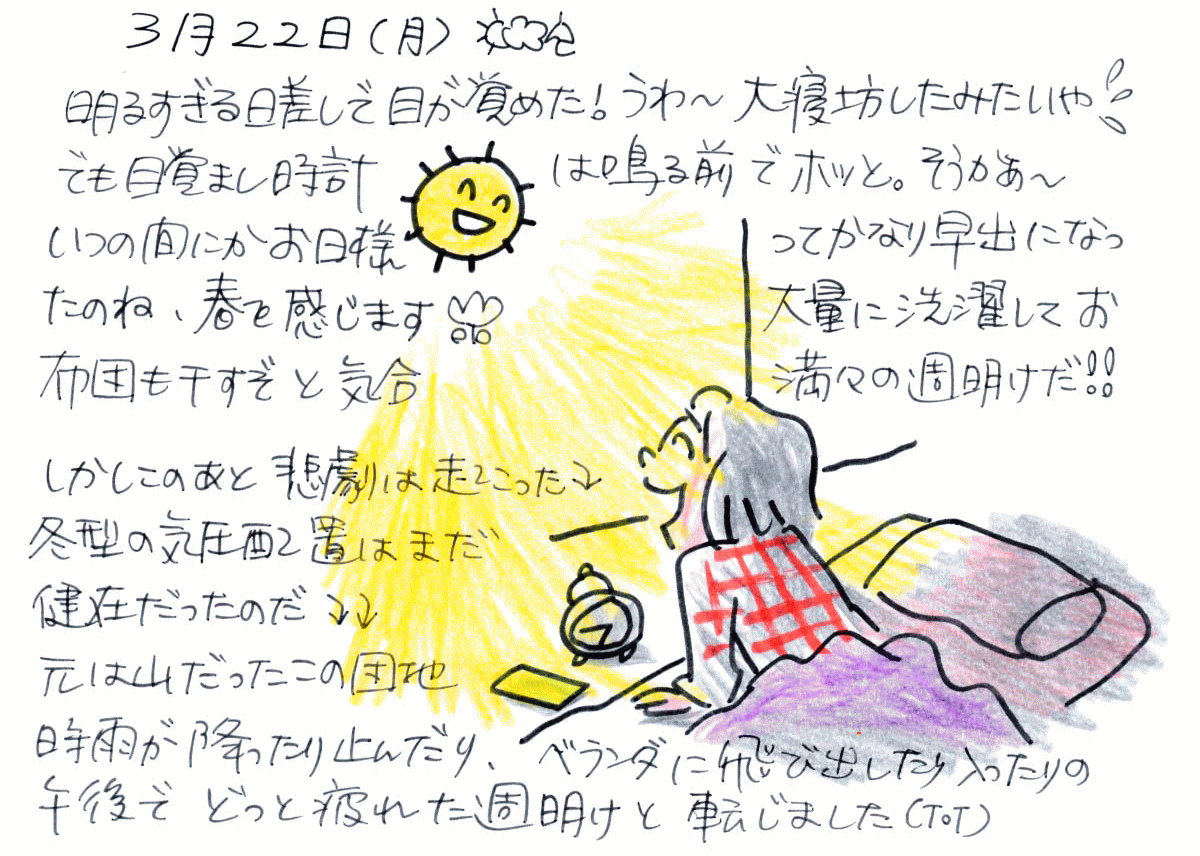 3月22日(月)
明るすぎる日差しで目が覚めた!うわ〜大寝坊したみたいや
でも目覚まし時計は鳴る前でホッと。そうかぁ〜
いつの間にかお日様ってかなり早出になっ
たのね、春を感じます大量に洗濯してお
布団も干すぞと気合満々の週明けだ!!
しかしこのあと悲劇は起こった↓
冬型の気圧配置はまだ
健在だったのだ↓↓
元は山だったこの団地
時雨が降ったり止んだり、ベランダに飛び出したり入ったりの
午後でどっと疲れた週明けと転じました(ToT)